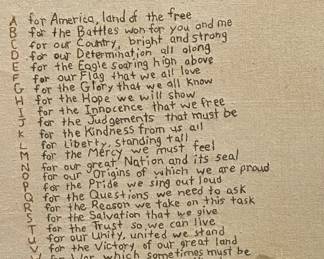 A for America, land of the free
B for the Battles won for you and me
C for our Country, bright and strong
D for our Determination all along
E for the Eagle soaring high above
F for our Flag that we all love
G for the Glory that we all know
H for the Hope we will show
I for the Innocence that we free
J for the Judgements that must be
K for the Kindness from us all
L for Liberty, standing tall
M for the Mercy we must feel
N for our great Nation and its seal
O for our Origins of which we are proud
P for the Pride we sing out loud
Q for the Questions we need to ask
R for the Reason we take on this task
S for the Salvation that we give
T for the Trust so we can live
U for our Unity, united we stand
V for the Victory of our great land
W for War which sometimes must be